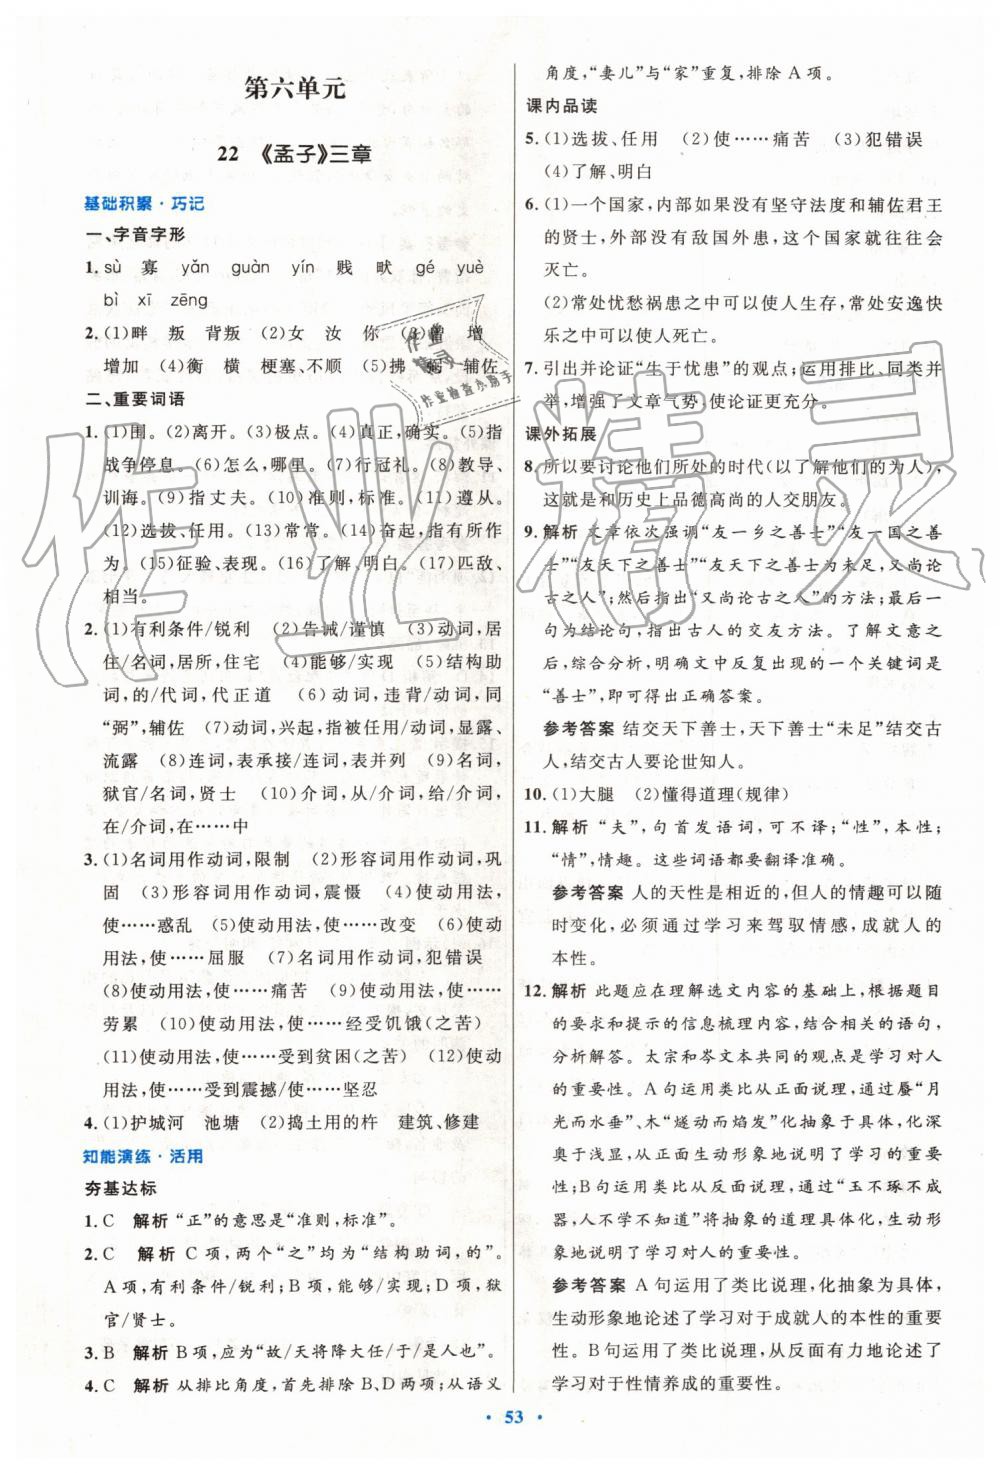 第六单元
22 《孟子》三章
基础积累·巧记
一、字音字形
1. sù 寡 yǎn guàn yín 贱 畎 gé yuè
bì xī zēng
2. (1)畔 叛 背叛 (2)女 汝 你 (3)曾 增
增加 (4)衡 横 梗塞、不顺 (5)拂 弼 辅佐
二、重要词语
1. (1)围。(2)离开。(3)极点。(4)真正,确实。(5)指
战争停息。(6)怎么,哪里。(7)行冠礼。(8)教导、
训诲。(9)指丈夫。(10)准则,标准。(11)遵从。
(12)选拔、任用。(13)常常。(14)奋起,指有所作
为。(15)征验、表现。(16)了解、明白。(17)匹敌、
相当。
2. (1)有利条件/锐利 (2)告诫/谨慎 (3)动词,居
住/名词,居所,住宅 (4)能够/实现 (5)结构助
词,的/代词,代正道 (6)动词,违背/动词,同
“弼”,辅佐 (7)动词,兴起,指被任用/动词,显露、
流露 (8)连词,表承接/连词,表并列 (9)名词,
狱官/名词,贤士 (10)介词,从/介词,给/介词,
在/介词,在……中
3. (1)名词用作动词,限制 (2)形容词用作动词,巩
固 (3)形容词用作动词,震慑 (4)使动用法,
使……惑乱 (5)使动用法,使……改变 (6)使动
用法,使……屈服 (7)名词用作动词,犯错误
(8)使动用法,使……痛苦 (9)使动用法,使……
劳累 (10)使动用法,使……经受饥饿(之苦)
(11)使动用法,使……受到贫困(之苦) (12)使动
用法,使……受到震撼/使……坚忍
4. (1)护城河 池塘 (2)捣土用的杵 建筑、修建
知能演练·活用
夯基达标
1. C 解析 “正”的意思是“准则,标准”。
2. C 解析 C项,两个“之”均为“结构助词,的”。
A项,有利条件/锐利;B项,能够/实现;D项,狱
官/贤士。
3. B 解析 B项,应为“故/天将降大任/于/是人也”。
4. C 解析 从排比角度,首先排除B、D两项;从语义
角度,“妻儿”与“家”重复,排除A项。
课内品读
5. (1)选拔、任用 (2)使……痛苦 (3)犯错误
(4)了解、明白
6. (1)一个国家,内部如果没有坚守法度和辅佐君王
的贤士,外部没有敌国外患,这个国家就往往会
灭亡。
(2)常处忧愁祸患之中可以使人生存,常处安逸快
乐之中可以使人死亡。
7. 引出并论证“生于忧患”的观点;运用排比、同类并
举,增强了文章气势,使论证更充分。
课外拓展
8. 所以要讨论他们所处的时代(以了解他们的为人),
这就是和历史上品德高尚的人交朋友。
9. 解析 文章依次强调“友一乡之善士”“友一国之善
士”“友天下之善士”“友天下之善士为未足,又尚论
古之人”;然后指出“又尚论古之人”的方法;最后一
句为结论句,指出古人的交友方法。了解文意之
后,综合分析,明确文中反复出现的一个关键词是
“善士”,即可得出正确答案。
参考答案 结交天下善士,天下善士“未足”结交古
人,结交古人要论世知人。
10. (1)大腿 (2)懂得道理(规律)
11. 解析 “夫”,句首发语词,可不译;“性”,本性;
“情”,情趣。这些词语都要翻译准确。
参考答案 人的天性是相近的,但人的情趣可以随
时变化,必须通过学习来驾驭情感,成就人的
本性。
12. 解析 此题应在理解选文内容的基础上,根据题目
的要求和提示的信息梳理内容,结合相关的语句,
分析解答。太宗和岑文本共同的观点是学习对人
的重要性。A句运用类比从正面说理,通过蜃“月
光而水垂”、木“燧动而焰发”类比说理,化深
奥于浅显,从正面生动形象地说明了学习的重要
性;B句运用类比从反面说理,通过“玉不琢不成
器,人不学不知道”将抽象的道理具体化,生动形
象地说明了学习对人的重要性。
参考答案 A句运用了类比说理,化抽象为具体,
生动形象地论述了学习对于成就人的本性的重要
性。B句运用了类比说理,从反面有力地论述了
学习对于性情养成的重要性。
· 53 ·
作业精灵
作业
精灵
作业检查小助手